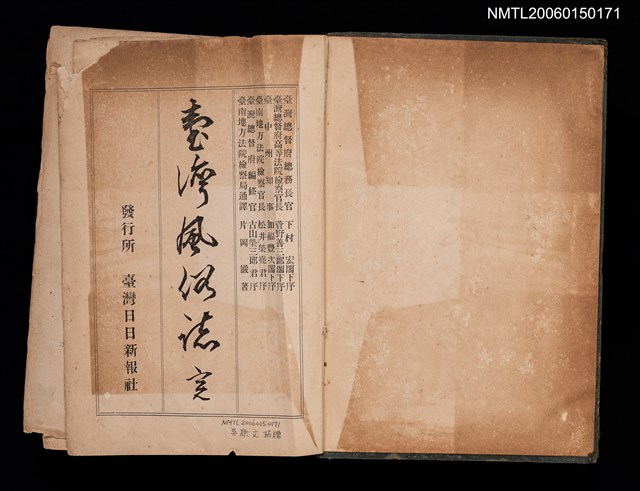 NMTL20060150171
臺灣總督府總務長官 下村 宏閣下序
臺灣總督府高等法院檢察官長 菅野善三郎閣下序
臺中州知事 加福豊次閣下序
臺南地方法院檢察官長 松井榮堯君序
臺灣總督府編修官 古山榮三郎君序
臺南地方法院檢察局通譯 片岡 巖著
臺灣風俗誌 完
發行所 臺灣日日新報社
NMTL20060150171